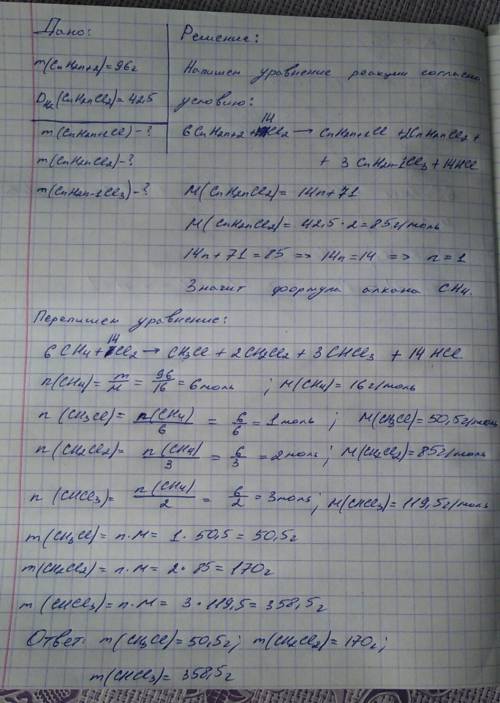 Дано:
m(CnH2n+2)=96г
DH2(CnH2nCl2)=42,5
m(CnH2n+1Cl)-?
m(CnH2nCl2)-?
m(CnH2n-1Cl3)-?
Решение:
Напишем уравнение реакции согласно
условию:
6CnH2n+2 + 14Cl2 → CnH2n+1Cl + 2CnH2nCl2 +
+ 3CnH2n-1Cl3 + 14HCl
M(CnH2nCl2)= 14n+71
M(CnH2nCl2)= 42,5·2=85г/моль
14n+71=85 => 14n=14 => n=1
Значит формула алкана CH4.
Перепишем уравнение:
6CH4 + 14Cl2 → CH3Cl + 2CH2Cl2 + 3CHCl3 + 14HCl
n(CH4)= m/M = 96/16 = 6моль ; M(CH4)= 16г/моль
n(CH3Cl)= n(CH4)/6 = 6/6 = 1моль ; M(CH3Cl)=50,5г/моль
n(CH2Cl2)= n(CH4)/3 = 6/3 = 2моль ; M(CH2Cl2)=85г/моль
n(CHCl3)= n(CH4)/2 = 6/2 = 3моль ; M(CHCl3)=119,5г/моль
m(CH3Cl)= n·M= 1·50,5=50,5г
m(CH2Cl2)= n·M= 2·85=170г
m(CHCl3)= n·M= 3·119,5=358,5г
Ответ: m(CH3Cl)=50,5г; m(CH2Cl2)=170г;
m(CHCl3)=358,5г